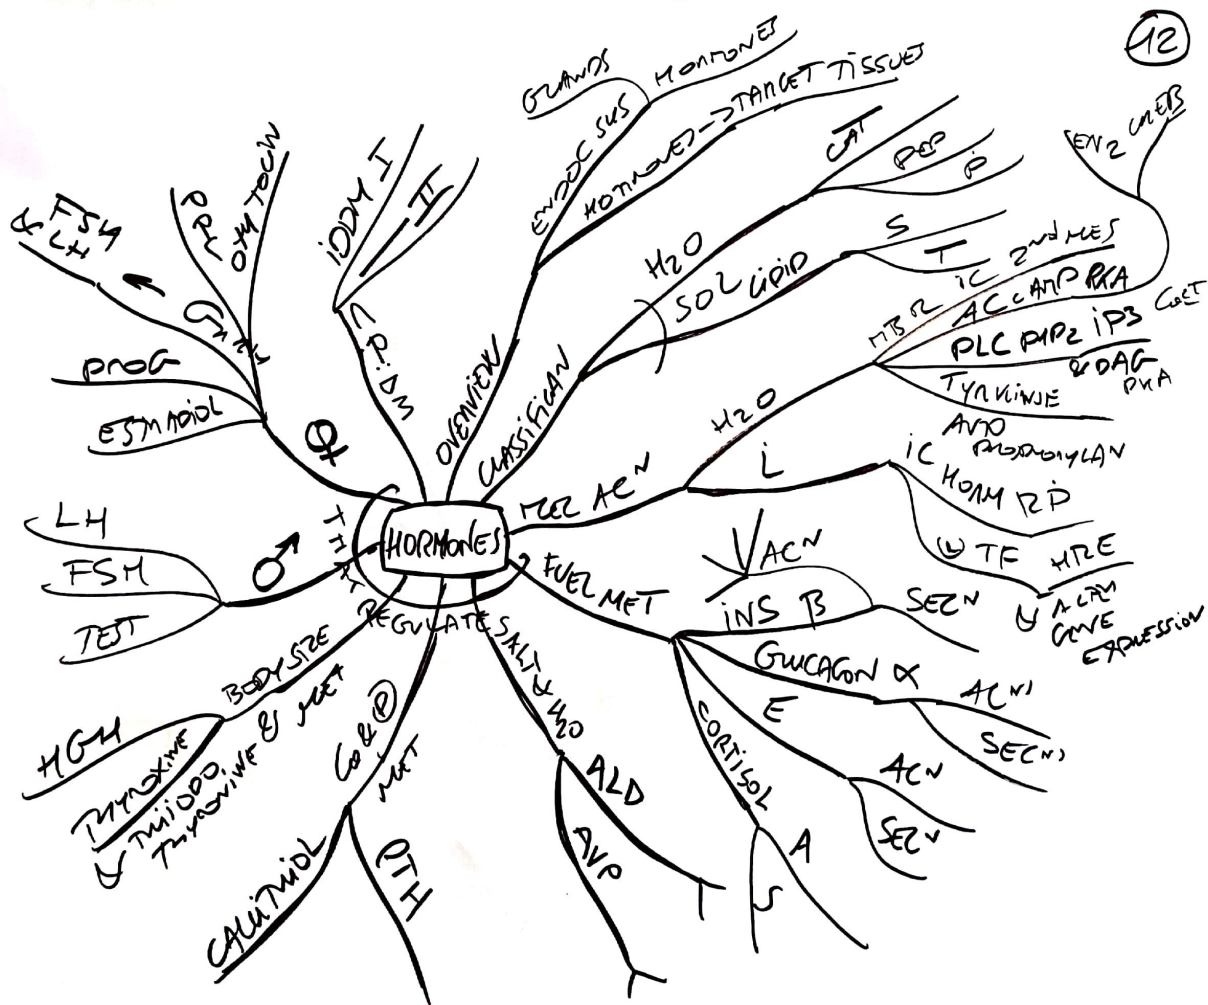 12
HORMONES
THAT
REGULATE
OVERVIEW
ENDOC SYS
GLANDS
HORMONES
HORMONES -> TARGET TISSUES
CLASSIFICAN
SOL
H2O
CAT
PEP
P
LIPID
S
T
MEC ACN
H2O
MBR
IC 2nd MES
AC cAMP PKA
ENZ
CREB
PLC PIP2 IP3
& DAG
TYR KINASE
AUTO
PHOSPHORYLAN
L
IC
HORM RP
TF
HRE
& ALTER
GENE
EXPRESSION
FUEL MET
INS β
ACN
SECN
GLUCAGON α
ACN
SECN
E
ACN
SECN
CORTISOL
A
S
SALT & H2O
ALD
AVP
Ca & P
MET
PTH
CALCITRIOL
BODY SIZE
& MET
HGH
THYROXINE
& TRIIODO
THYRONINE
♂
LH
FSH
TEST
♀
ESTRADIOL
PROG
GnRH
FSH
& LH
PRL
OXYTOCIN
IDDM I
II